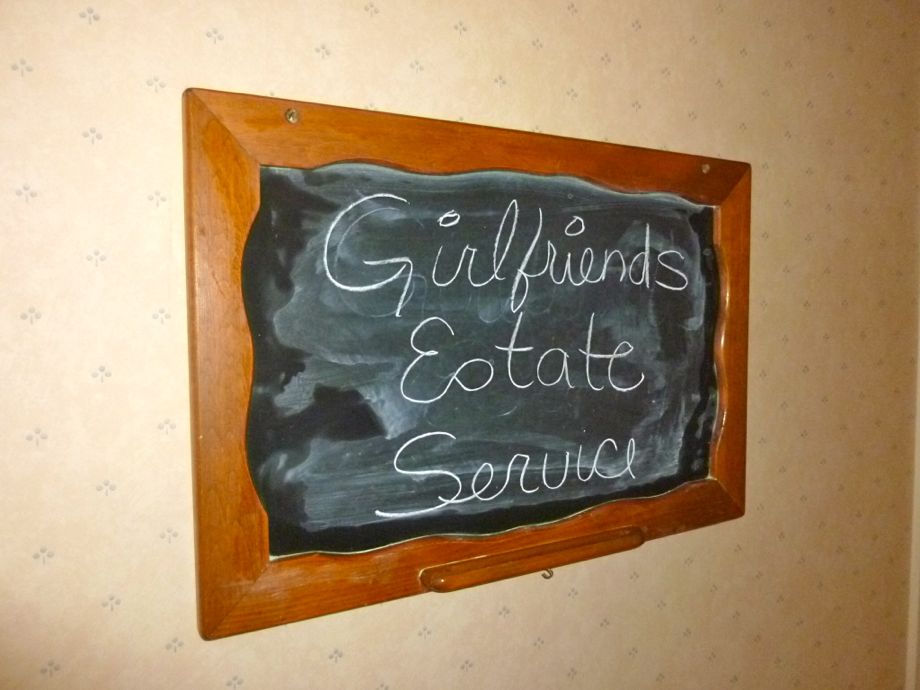 Girlfriends
Estate
Service